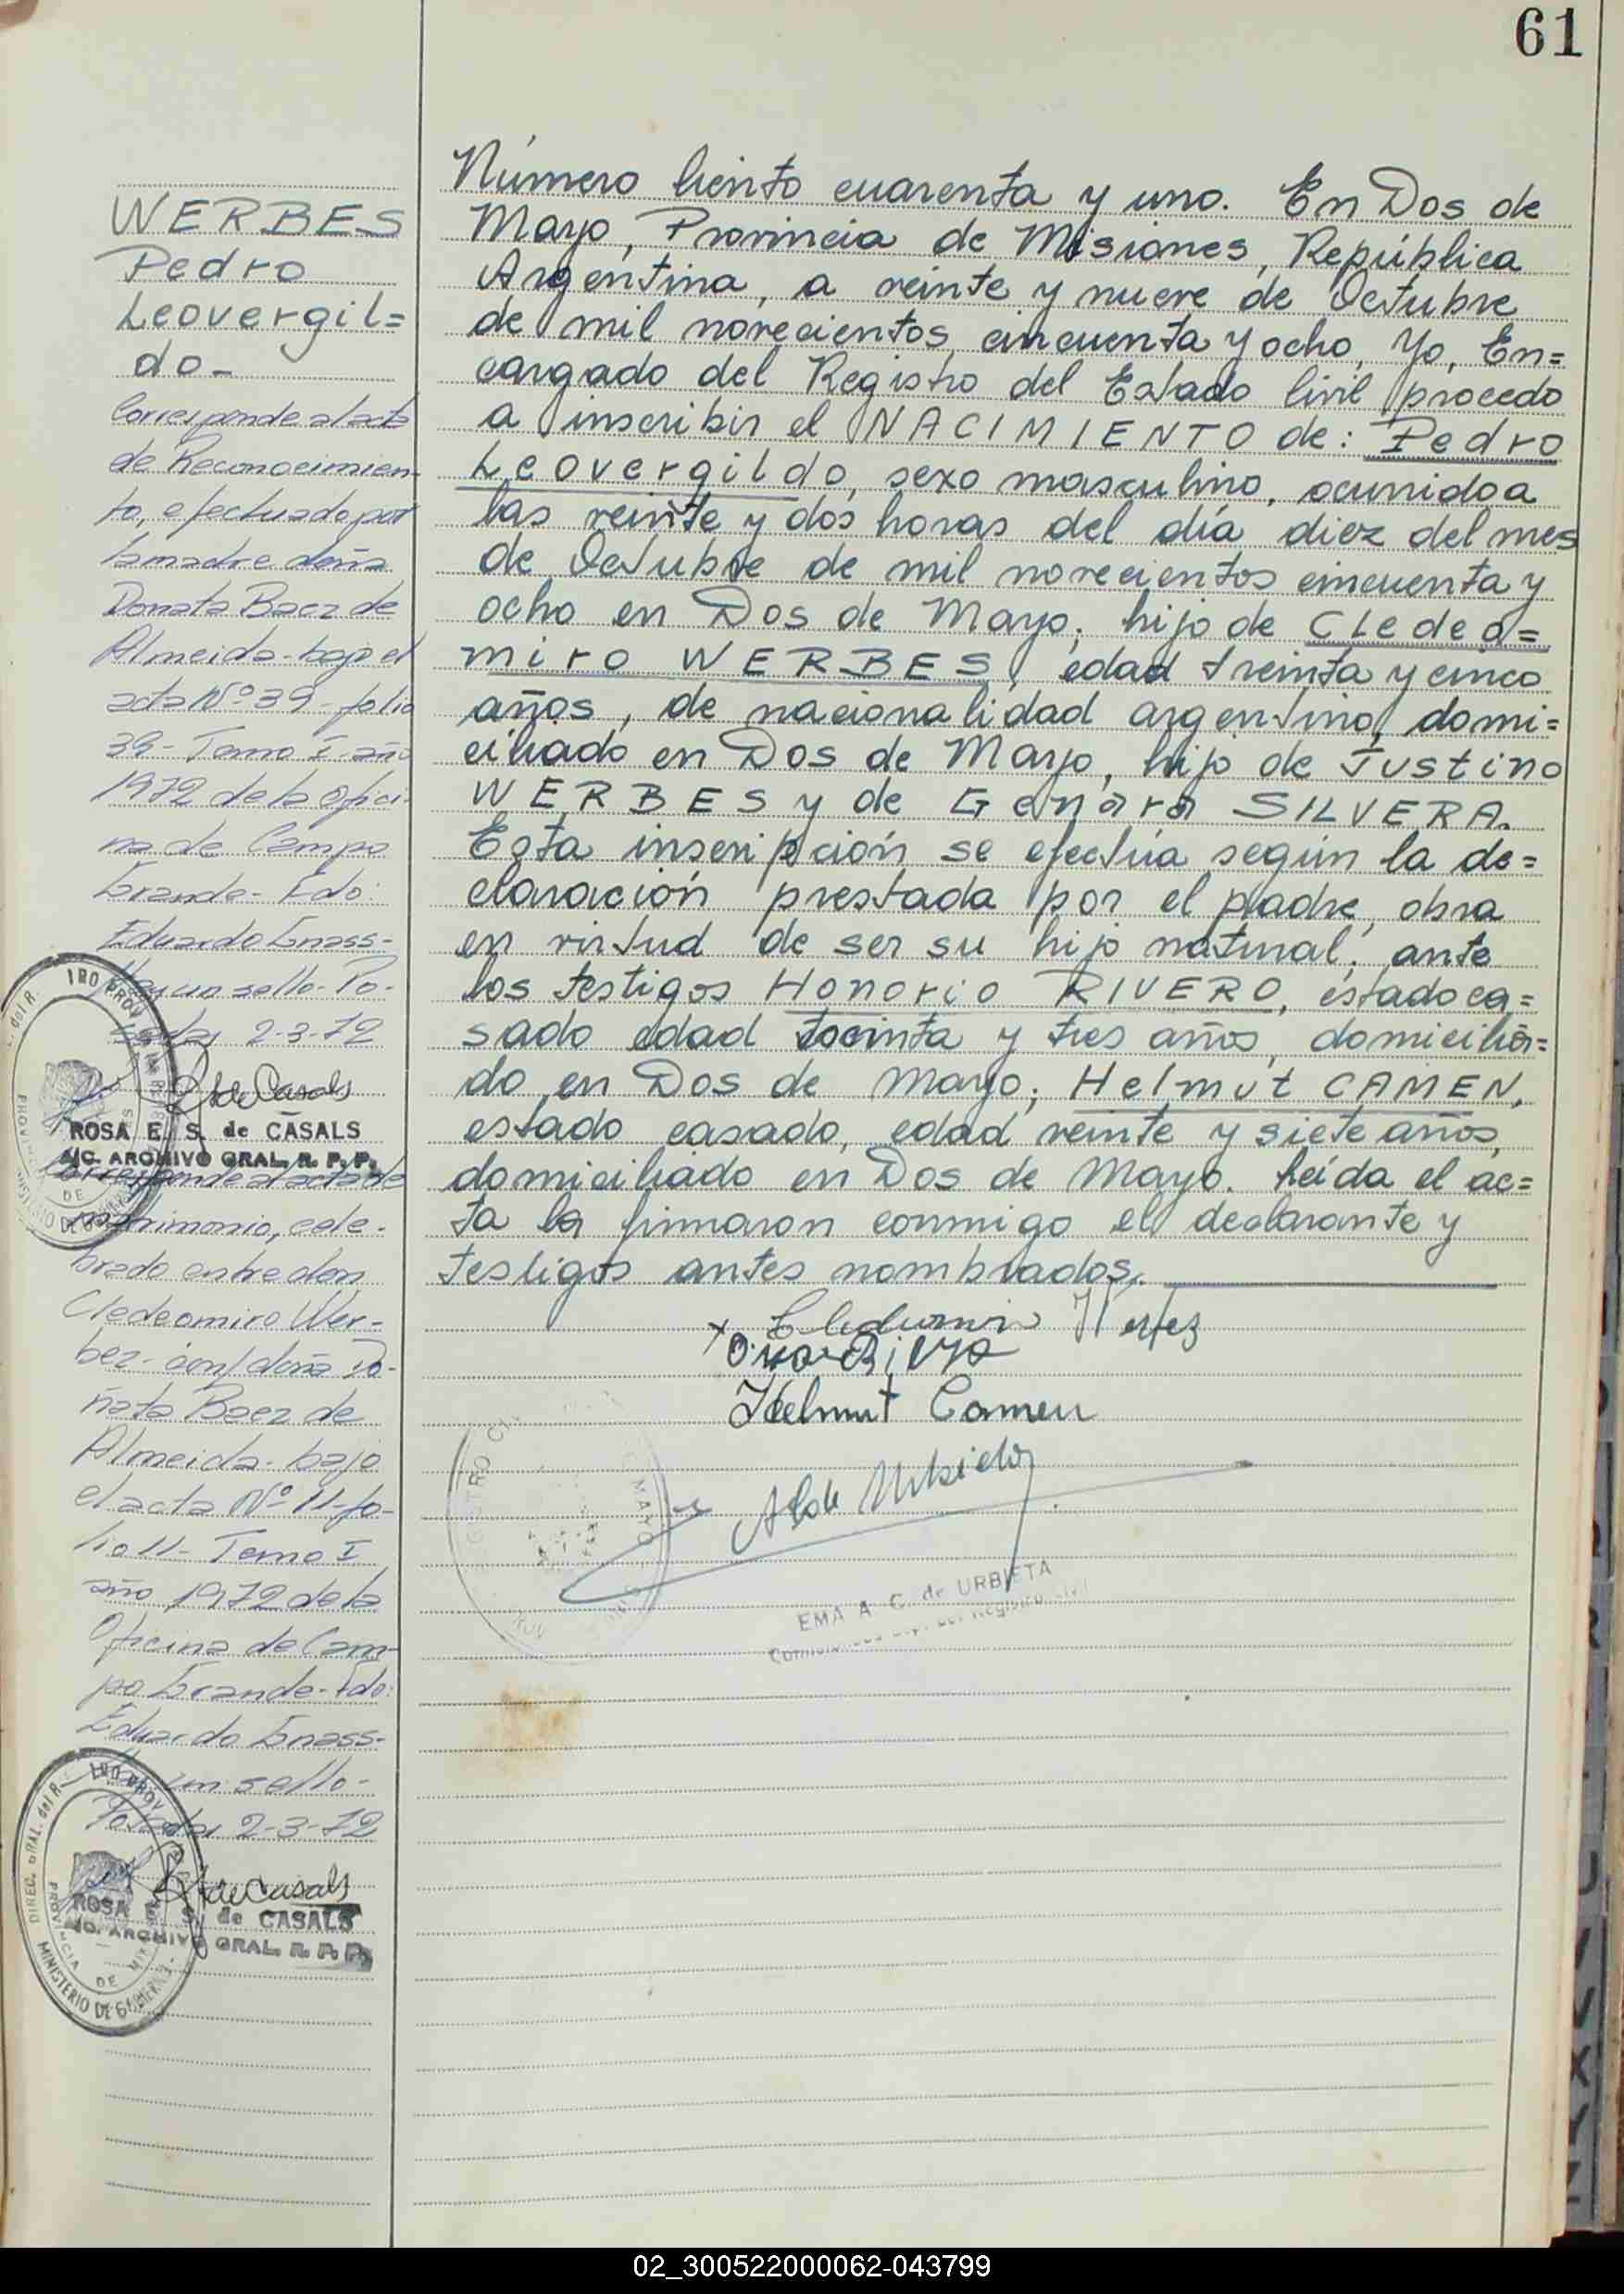 61
WERBES
Pedro
Leovergil=
do-
Corresponde al acta
de Reconocimien-
to, efectuado por
la madre doña
Donata Baez de
Almeida- bajo el
acta Nº 39- folio
39- Tomo I- año
1972 de la Ofici-
na de Campo
Grande- Fdo:
Eduardo Gnass-
Hay un sello- Po-
sadas 2-3-72
RdeCasals
ROSA E. S. de CASALS
A/C. ARCHIVO GRAL. R. P. P.
Corresponde al acta de
matrimonio, cele-
brado entre don
Cledeomiro Wer-
bez- con/ doña Do-
nata Baez de
Almeida- bajo
el acta Nº 11- fo-
lio 11- Tomo I
año 1972 de la
Oficina de Cam-
po Grande- Fdo:
Eduardo Gnass-
Hay un sello-
Posadas 2-3-72
RdeCasals
ROSA E. S. de CASALS
A/C. ARCHIVO GRAL. R. P. P.
DIREC. GRAL. del R.
PROVINCIA DE
MINISTERIO DE GOBIERNO
Número Ciento cuarenta y uno. En Dos de
Mayo, Provincia de Misiones, República
Argentina, a veinte y nueve de Octubre
de mil novecientos cincuenta y ocho, Yo, En=
cargado del Registro del Estado Civil procedo
a inscribir el NACIMIENTO de: Pedro
Leovergildo, sexo masculino, ocurrido a
las veinte y dos horas del día diez del mes
de Octubre de mil novecientos cincuenta y
ocho en Dos de Mayo; hijo de Cledeo=
miro WERBES, edad treinta y cinco
años, de nacionalidad argentino, domi=
ciliado en Dos de Mayo, hijo de Justino
WERBES y de Genara SILVERA.
Esta inscripción se efectúa según la de=
claración prestada por el padre, obra
en virtud de ser su hijo natural; ante
los testigos Honorio RIVERO, estado ca=
sado edad treinta y tres años, domicilia=
do en Dos de Mayo; Helmut CAMEN,
estado casado, edad veinte y siete años,
domiciliado en Dos de Mayo. Leída el ac=
ta la firmaron conmigo el declarante y
testigos antes nombrados.
Helmut Camen
EMA A. C. de URBIETA
02_300522000062-043799